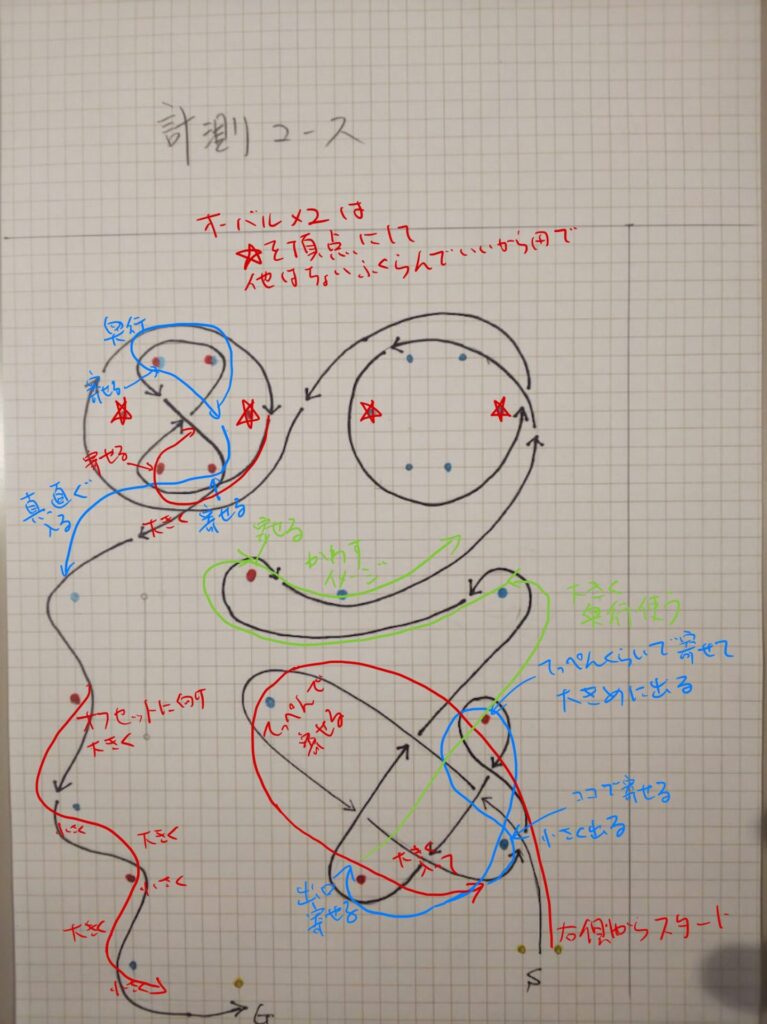 計測コース
オーバル×2は
☆を頂点にして
他はちょいふくらんでいいから円で
奥行
寄せる
寄せる
真直ぐ
入る
大きく
寄せる
寄せる
かわす
イメージ
大きく
奥行使う
てっぺんくらいで寄せて
大きめに出る
オフセットに向す
大きく
てっぺんで
寄せる
ココで寄せる
小さく出る
小さく
大きく
大きく
入って
小さく
出口
寄せる
大きく
右側からスタート
小さく
S
G